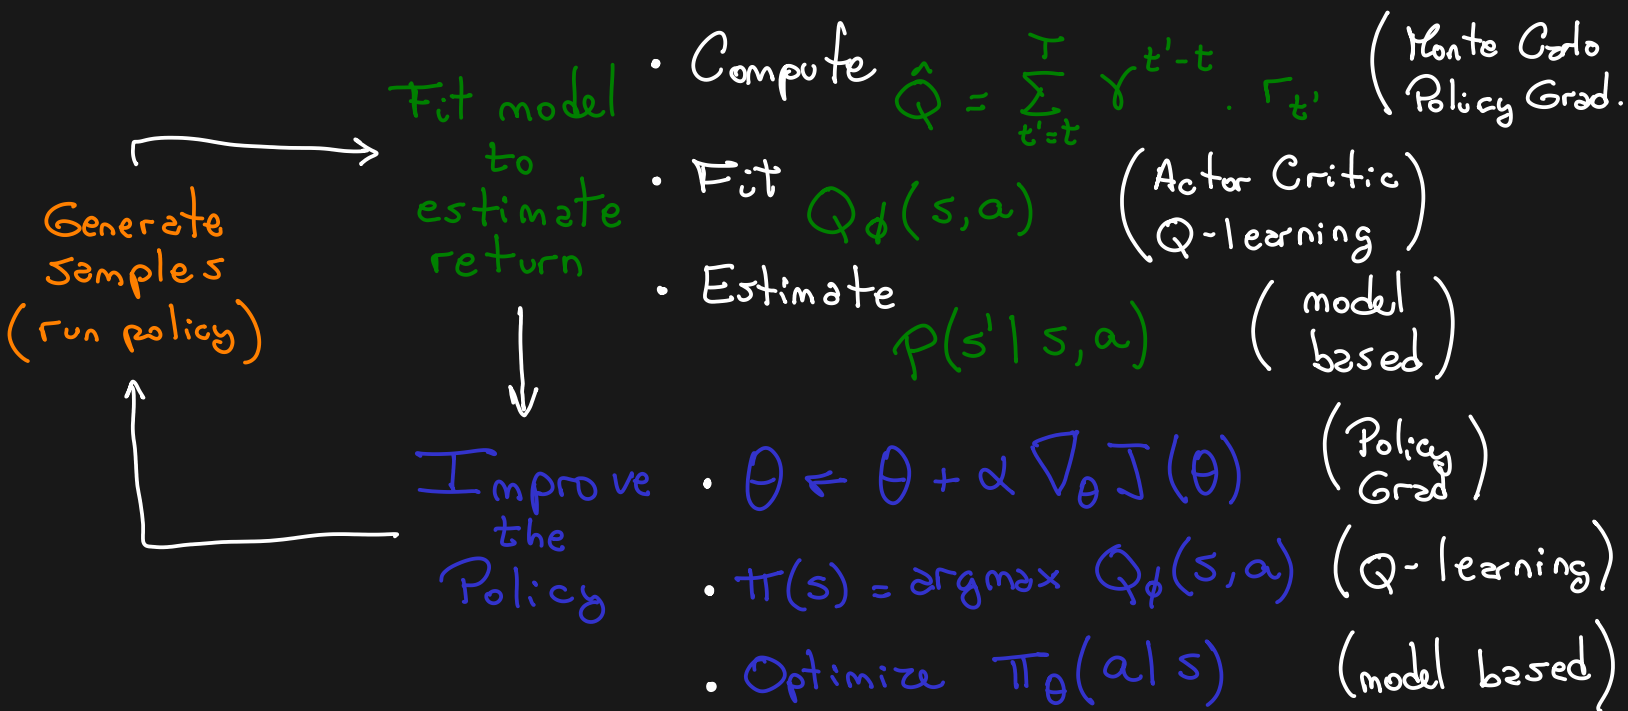 Generate
samples
(run policy)
Fit model
to
estimate
return
• Compute Q̂ = ∑_{t'=t}^{T} γ^{t'-t} . r_{t'} (Monte Carlo
Policy Grad.
• Fit Q_ϕ(s,a) (Actor Critic
Q-learning)
• Estimate p(s'| s,a) (model
based)
Improve
the
Policy
• θ ← θ + α ∇_θ J(θ) (Policy
Grad)
• π(s) = argmax Q_ϕ(s,a) (Q-learning)
• Optimize π_θ(a| s) (model based)